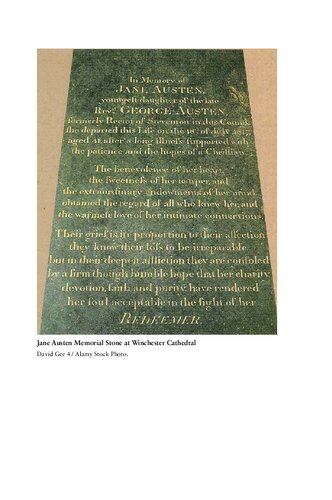 In Memory of
JANE AUSTEN,
youngeſt daughter of the late
Revd GEORGE AUSTEN,
formerly Rector of Steventon in this County
ſhe departed this Life on the 18th of July 1817,
aged 41, after a long illneſs ſupported with
the patience and the hopes of a Chriſtian.
The benevolence of her heart,
the ſweetneſs of her temper, and
the extraordinary endowments of her mind
obtained the regard of all who knew her, and
the warmeſt love of her intimate connections.
Their grief is in proportion to their affection
they know their loſs to be irreparable,
but in their deepeſt affliction they are conſoled
by a firm though humble hope that her charity,
devotion, faith and purity, have rendered
her ſoul acceptable in the ſight of her
REDEEMER.
Jane Austen Memorial Stone at Winchester Cathedral
David Gee 4 / Alamy Stock Photo.